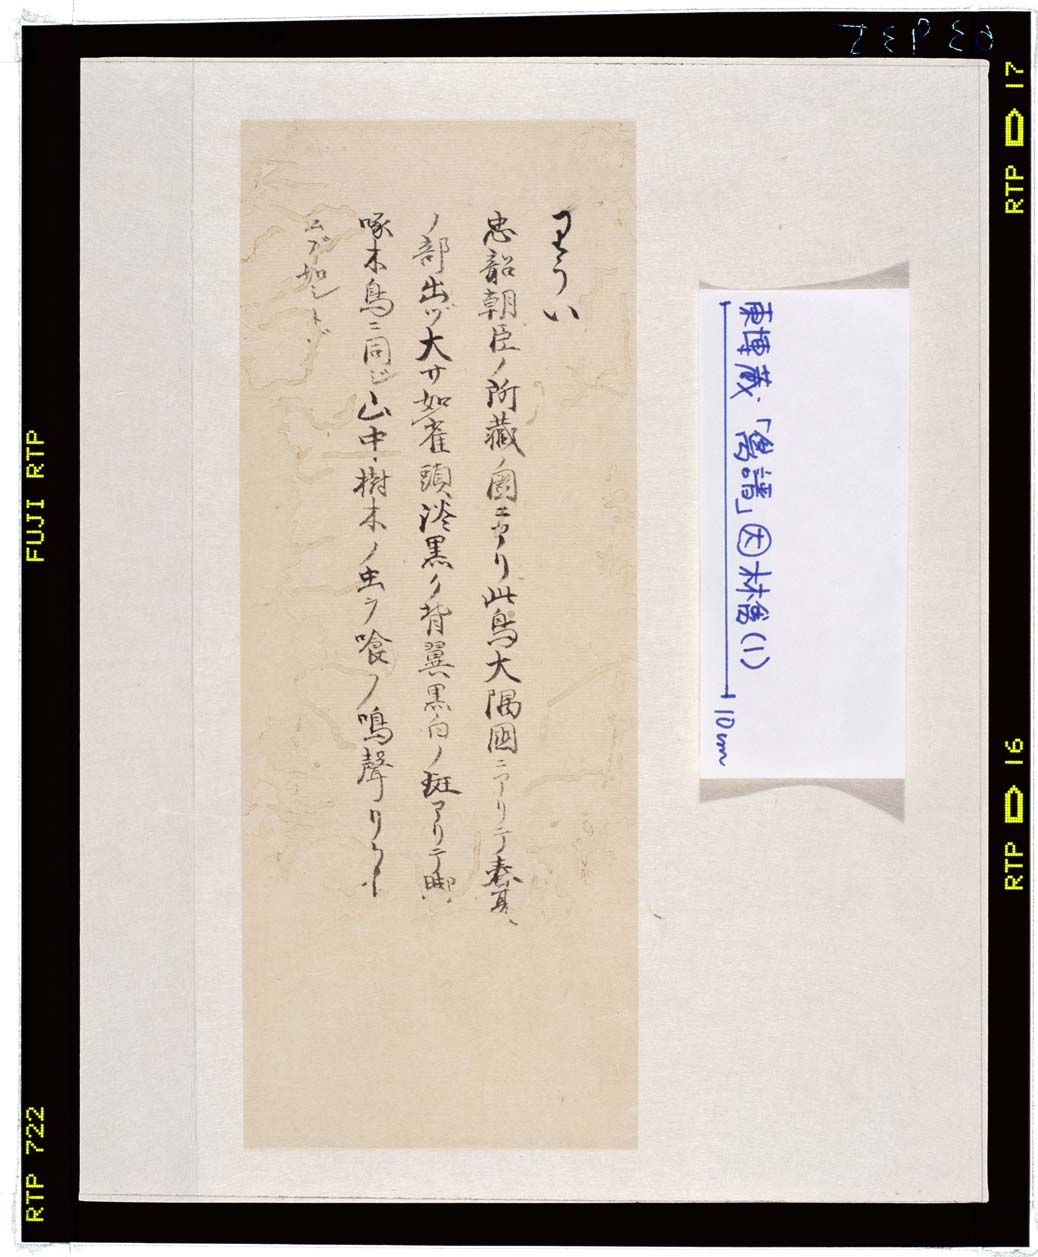 忠韶朝臣ノ所藏ノ圖ニアリ此鳥大隅國ニアリテ春夏
ノ部出ヅ大サ如雀頭淡黒ク背翼黒白ノ斑アリテ脚ハ
啄木鳥ニ同ジ山中樹木ノ虫ヲ喰フ鳴聲
東博蔵「鳥譜」因 林禽(1)
10cm
FUJI RTP
RTP 722
RTP 17
RTP 16